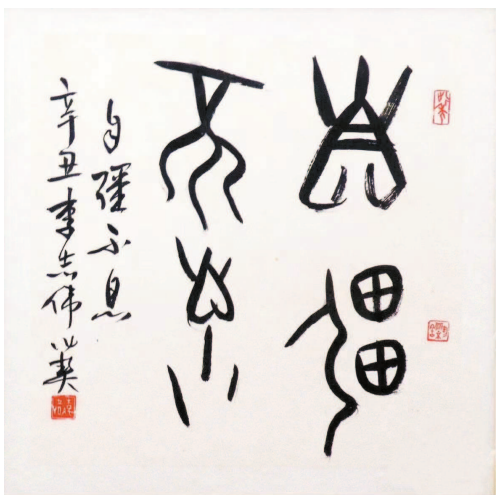 自彊
不息
自彊不息
辛丑李志伟